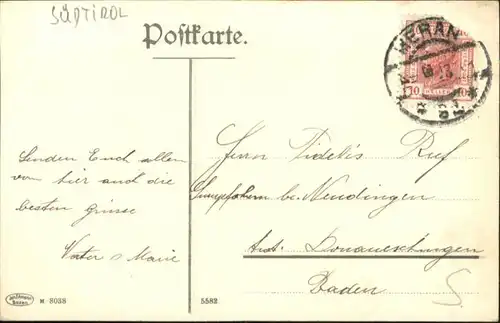 SÜDTIROL
Postkarte.
MERAN
10 HELLER 10
Senden Euch allen
von hier und die
besten Grüsse
Vater & Marie
Herrn Fidelis Ruf
be. Neudingen
Amt. Donaueschingen
Baden
M 8038
5582